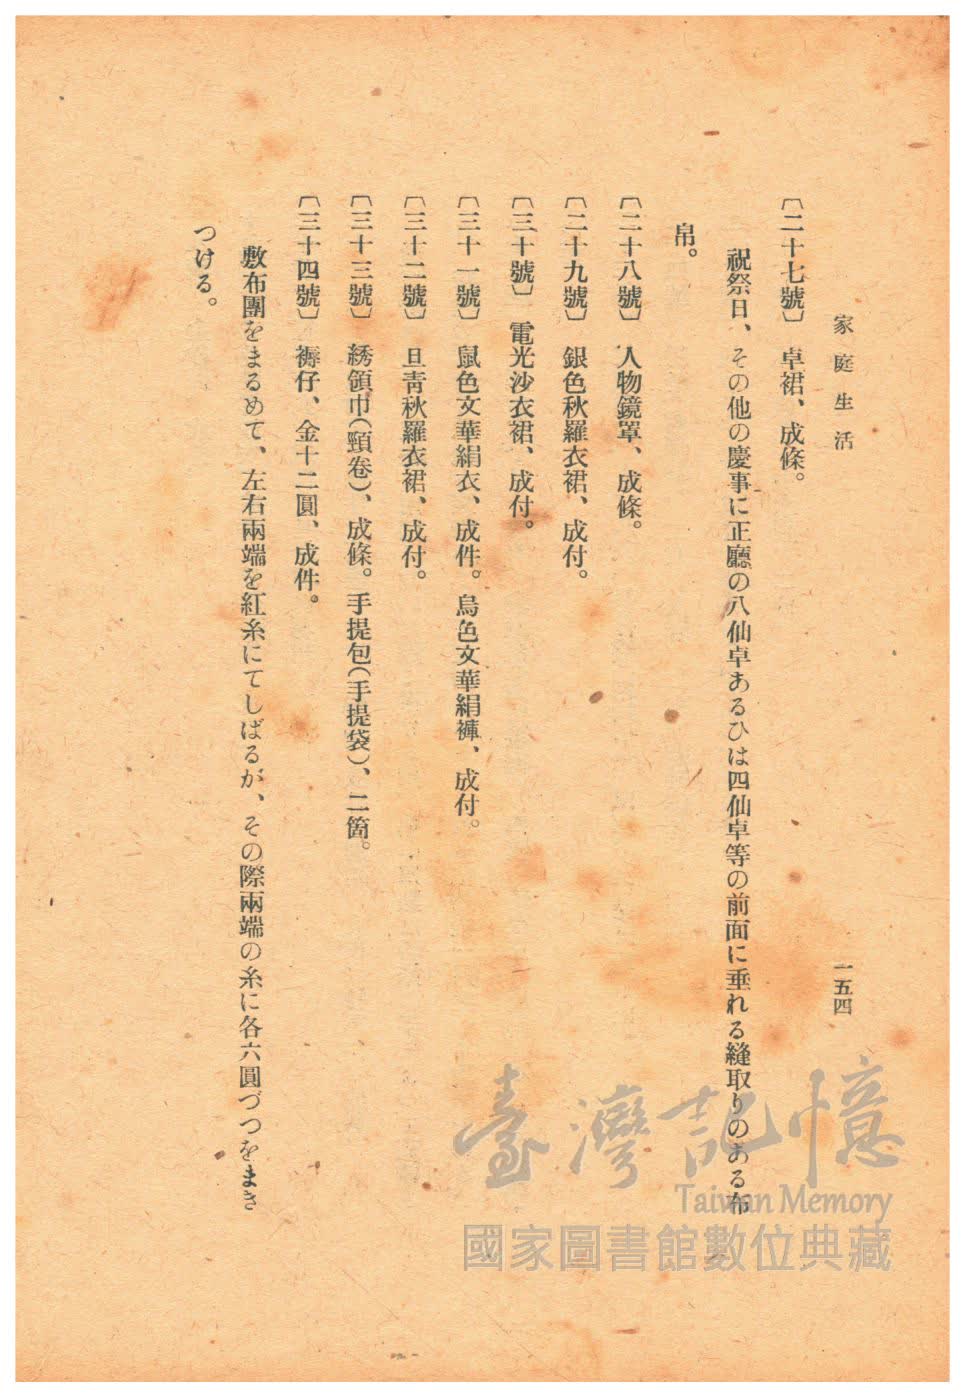 家庭生活
一五四
〔二十七號〕 卓裙、成條。
祝祭日、その他の慶事に正廳の八仙卓あるひは四仙卓等の前面に垂れる縫取りのある布
帛。
〔二十八號〕 人物鏡罩、成條。
〔二十九號〕 銀色秋羅衣裙、成付。
〔三十號〕 電光沙衣裙、成付。
〔三十一號〕 鼠色文華絹衣、成件。烏色文華絹褲、成付。
〔三十二號〕 旦靑秋羅衣裙、成付。
〔三十三號〕 綉領巾(頸卷)、成條。手提包(手提袋)、二箇。
〔三十四號〕 褥仔、金十二圓、成件。
敷布團をまるめて、左右兩端を紅糸にてしばるが、その際兩端の糸に各六圓づつをまき
つける。
臺灣記憶
Taiwan Memory
國家圖書館數位典藏